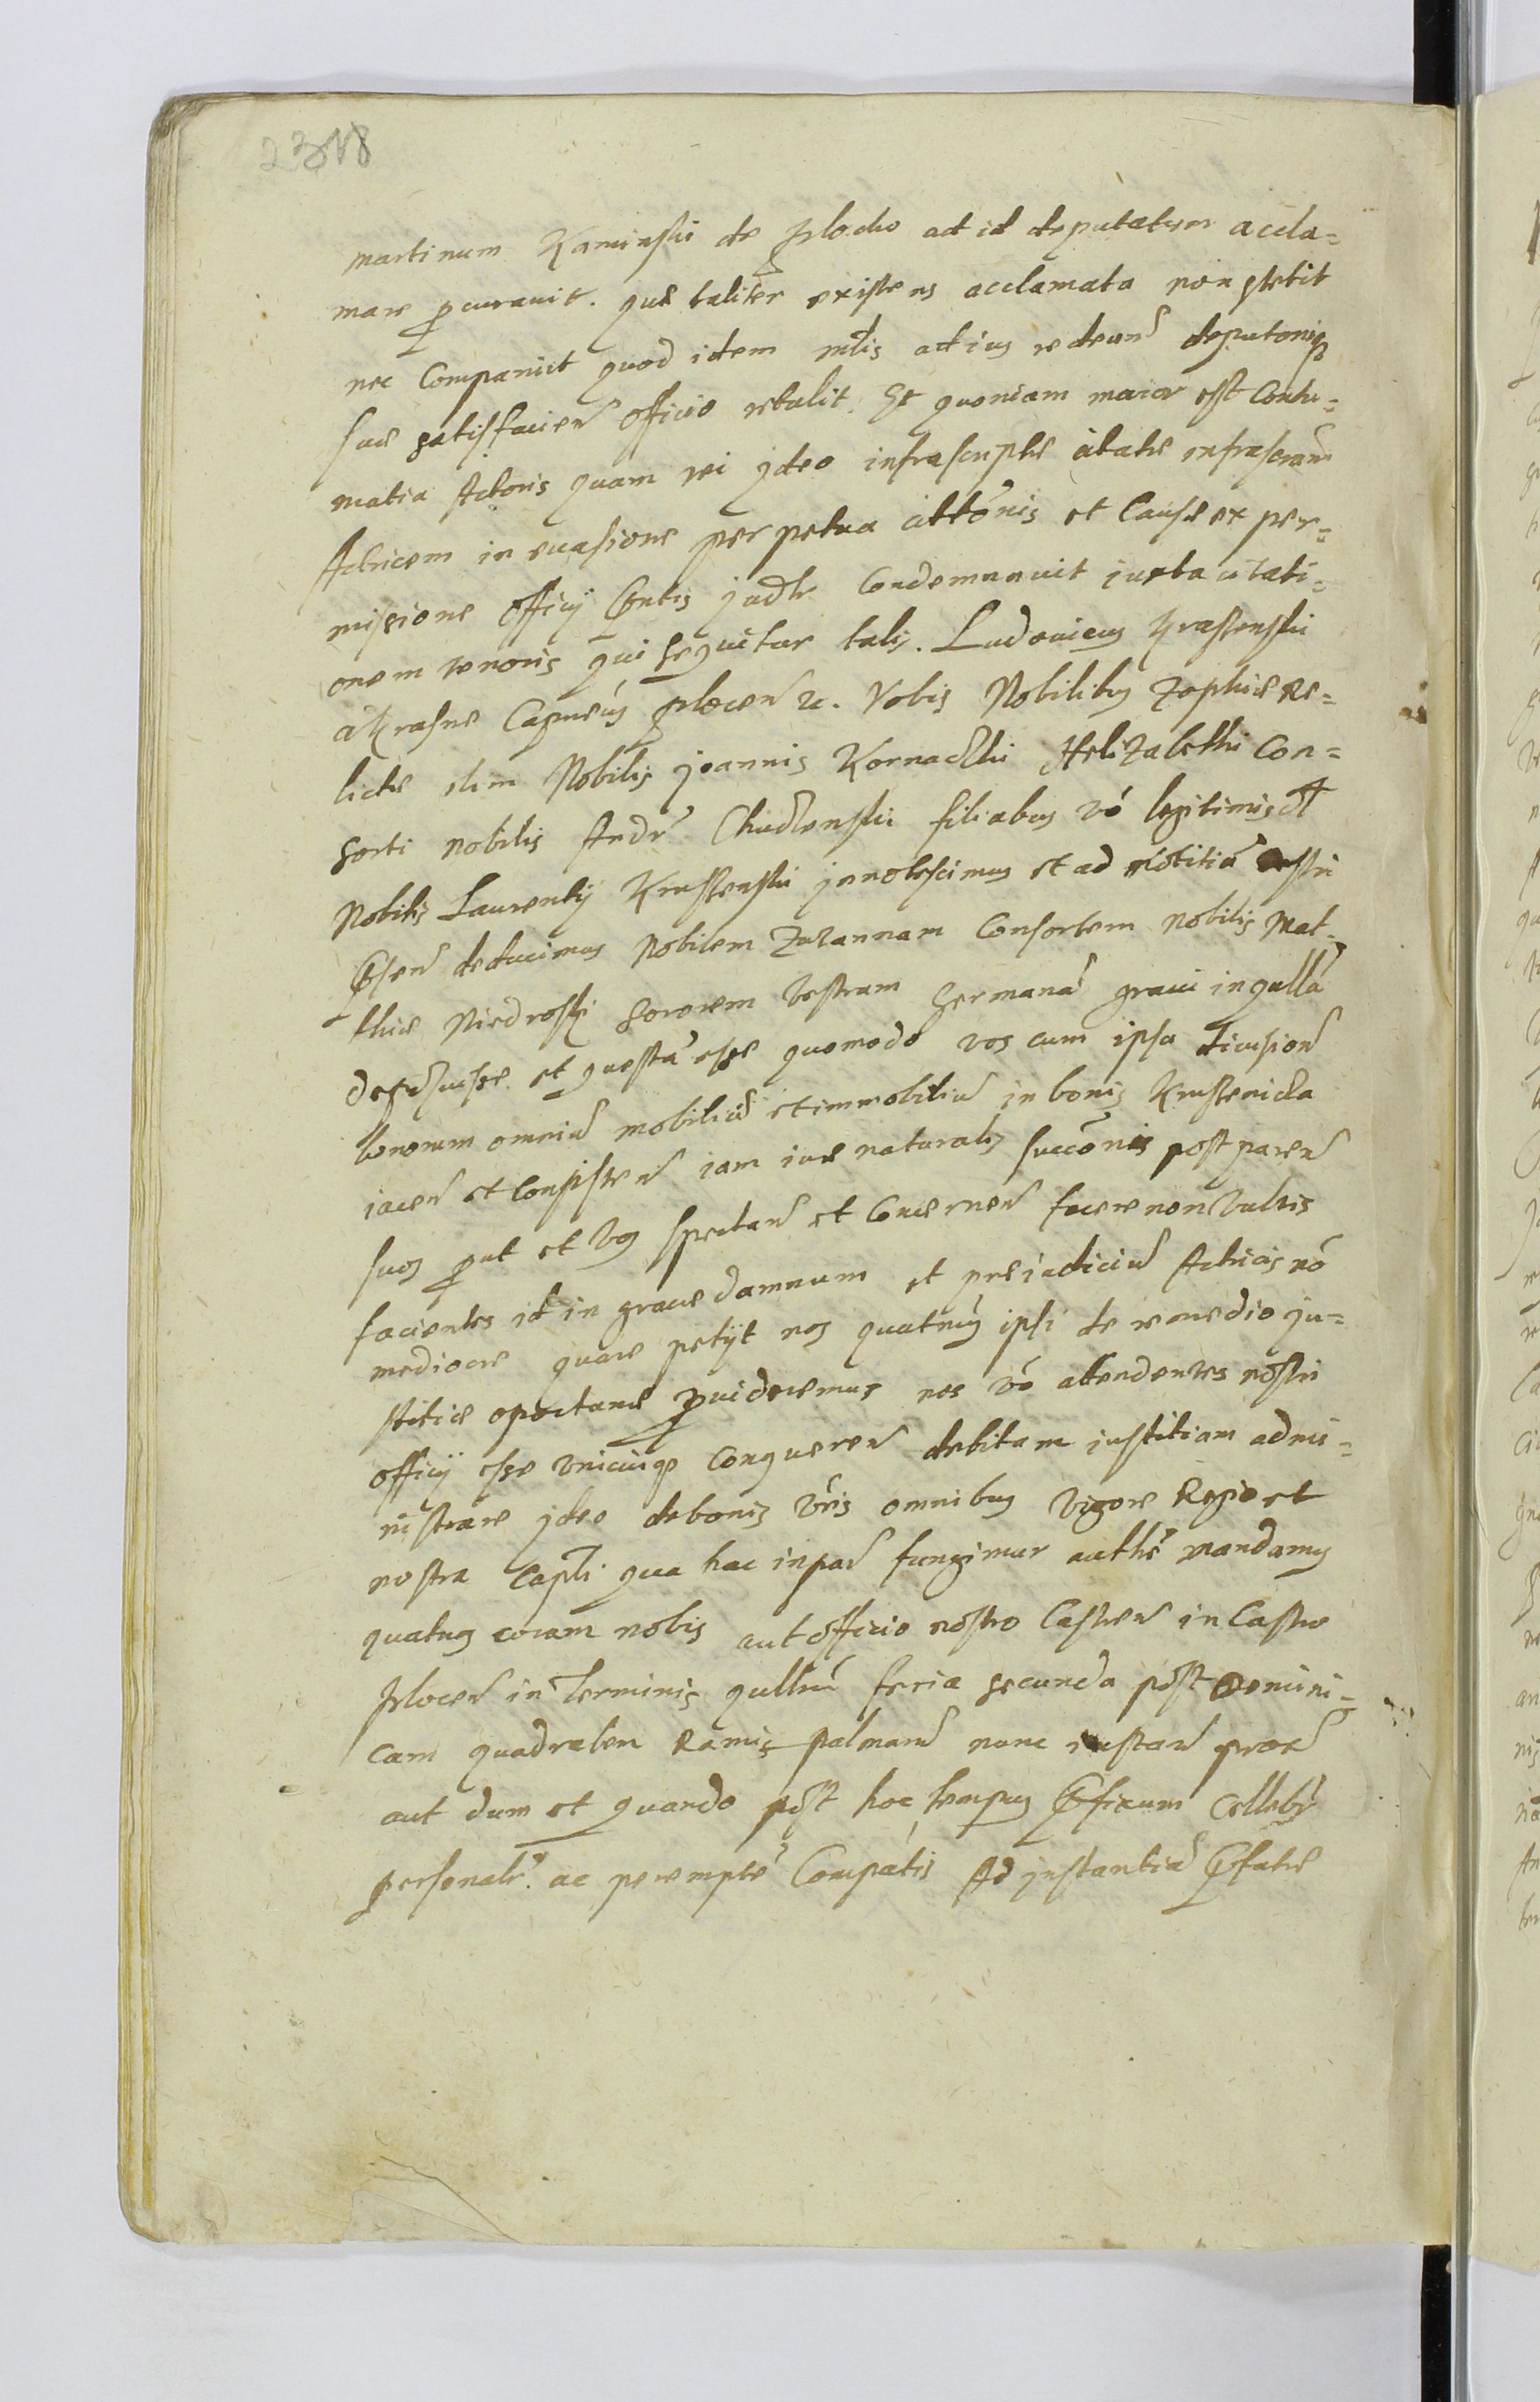 martinum Kaminski de Plocko ad id deputatum accla=
mare pcurauit. que taliter existens acclamata non stetit
nec Comparuit quod idem mlis ad ius redeun deputonis
sue satisfacien officio retulit. Et quoniam maior est Contu=
matia Actoris quam rei jdeo infrascripte citate infrascram
Actricem in euasione perpetua cittonis et Cause ex per=
misione officy pntis judtr Condemnauit iuxta citati=
onem tenoris qui sequitur talis. Ludouicus Krassenski
a Krasne Capneus plocen zc. Vobis Nobilibus Zophie Re=
licte olim Nobilis joannis Kornadzki Helizabethi Con=
sorti nobilis Andr Chudzenski filiabus vo legitimis ol
Nobilis Laurenty Krussenski jnnotescimus et ad notitia vestri
psen deducimus Nobilem Zuzannam Consortem nobilis Mat=
thie Niedroski Sororem Vestram Germana graui in qulla
deposuisse et questa esse quomodo vos cum ipsa diuision
bonorum omniu mobiliu et immobiliu in bonis Krussenicka
iacen et Consisten iam iure naturalis succonis post paren
suos put et Vos spectan et Concernen facere non Vultis
facientes id in graue damnum et preiudiciu Actricis no
mediocre quare petyt nos quatnus ipsi de remedio ju=
stitie oportune puideremus nos vo attendentes nostri
officy esse Vnicuiqe Conqueren debitam iustitiam admi=
nistrare jdeo de bonis Vris omnibus Vigore Regio et
nostra Capli qua hac in par fungimur authe mandamus
quatnus coram nobis aut officio nostro Castren in Castro
plocen in Terminis qullru feria secunda post Domini=
cam quadralem Ramis palmaru nunc instan prox
aut dum et quando post hoc tempus pfixum Cellebr
personalr. ac perempte Compatis Ad jnstantia pfate